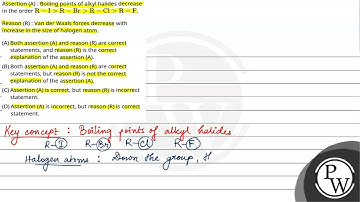 Assertion (A) : Boiling points of alkyl halides decrease
in the order R – I > R – Br > R – Cl > R – F.
Reason (R) : Van der Waals forces decrease with
increase in the size of halogen atom.
(A) Both assertion (A) and reason (R) are correct
statements, and reason (R) is the correct
explanation of the assertion (A).
(B) Both assertion (A) and reason (R) are correct
statements, but reason (R) is not the correct
explanation of the assertion (A).
(C) Assertion (A) is correct, but reason (R) is incorrect
statement.
(D) Assertion (A) is incorrect, but reason (R) is correct
statement.
Key concept : Boiling points of alkyl halides
R-I R-Br R-Cl R-F
Halogen atoms : Down the group, H
P
W